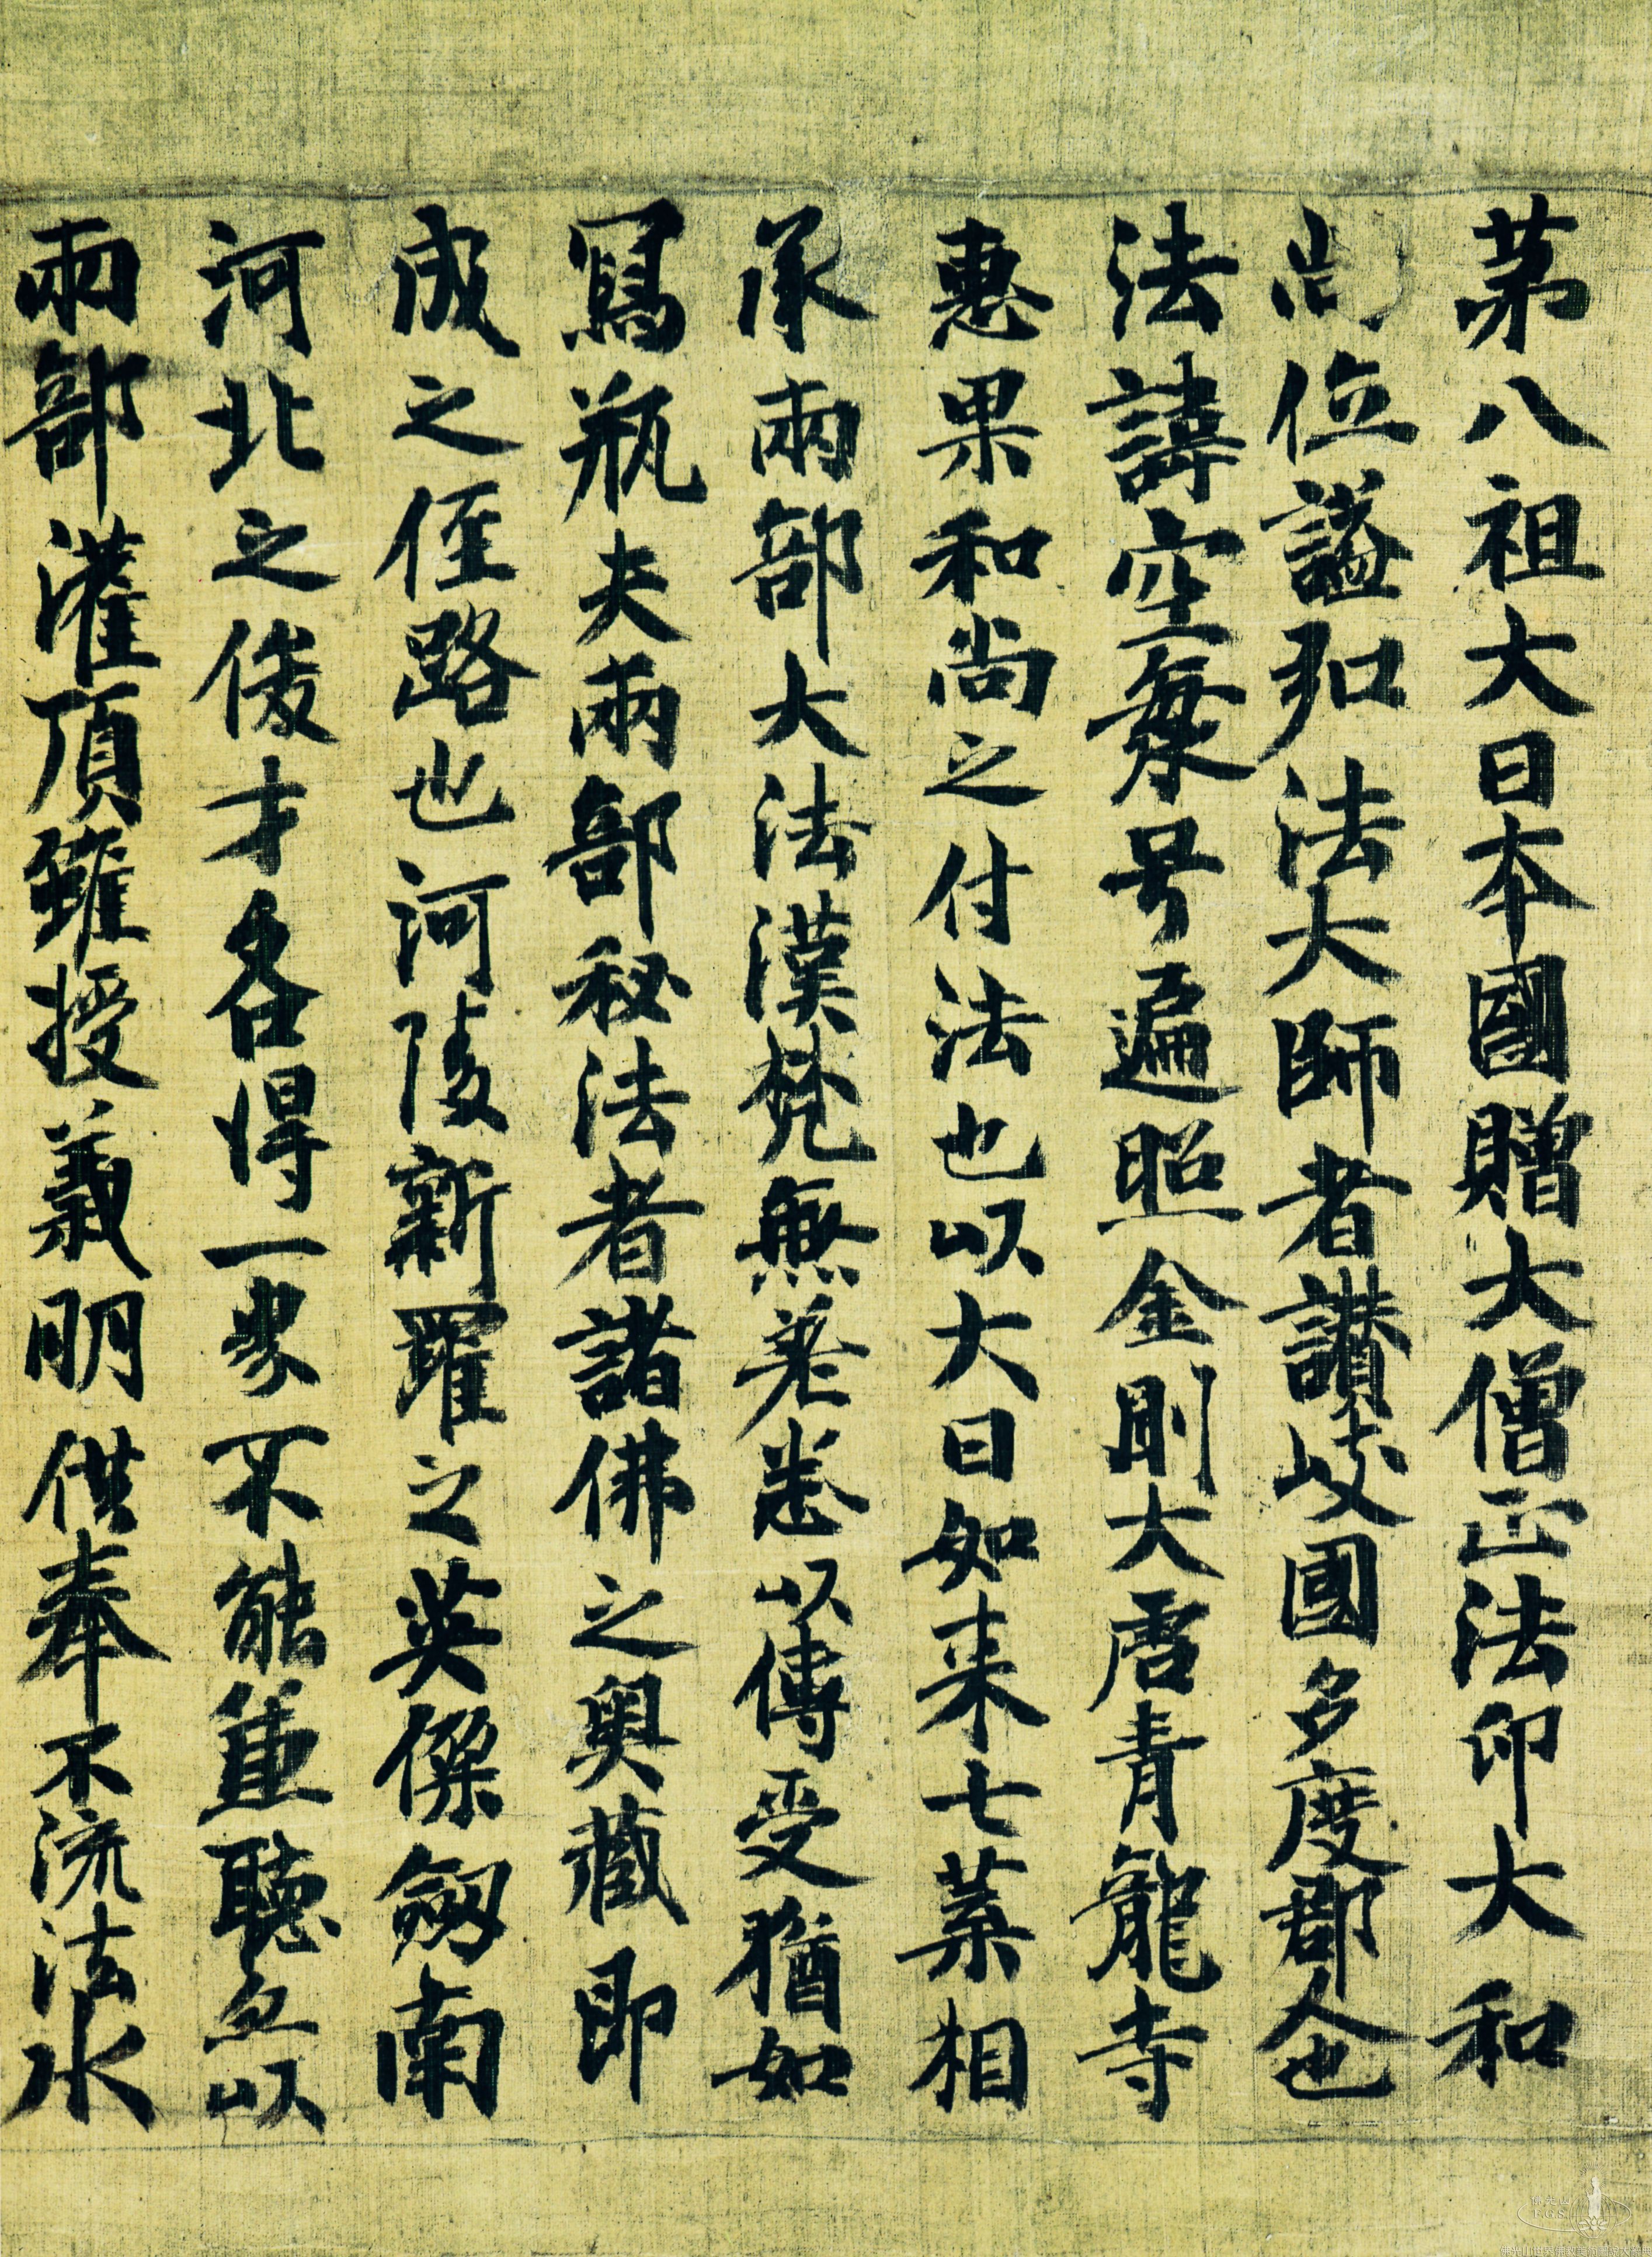 苐八祖大日本國贈大僧正法印大和
尚位謚弘法大師者讃岐國多度郡人也
法諱空海号遍照金剛大唐青龍寺
恵果和尚之付法也以大日如来七葉相
承兩部大法漢梵無差悉以傳受猶如
寫瓶夫兩部秘法者諸佛之奥藏即
成之侄路也河陵新羅之英傑劔南
河北之俊才各得一家不能兼聽亦以
兩部灌頂雖授義明供奉不流法水
佛光山
F.G.S.